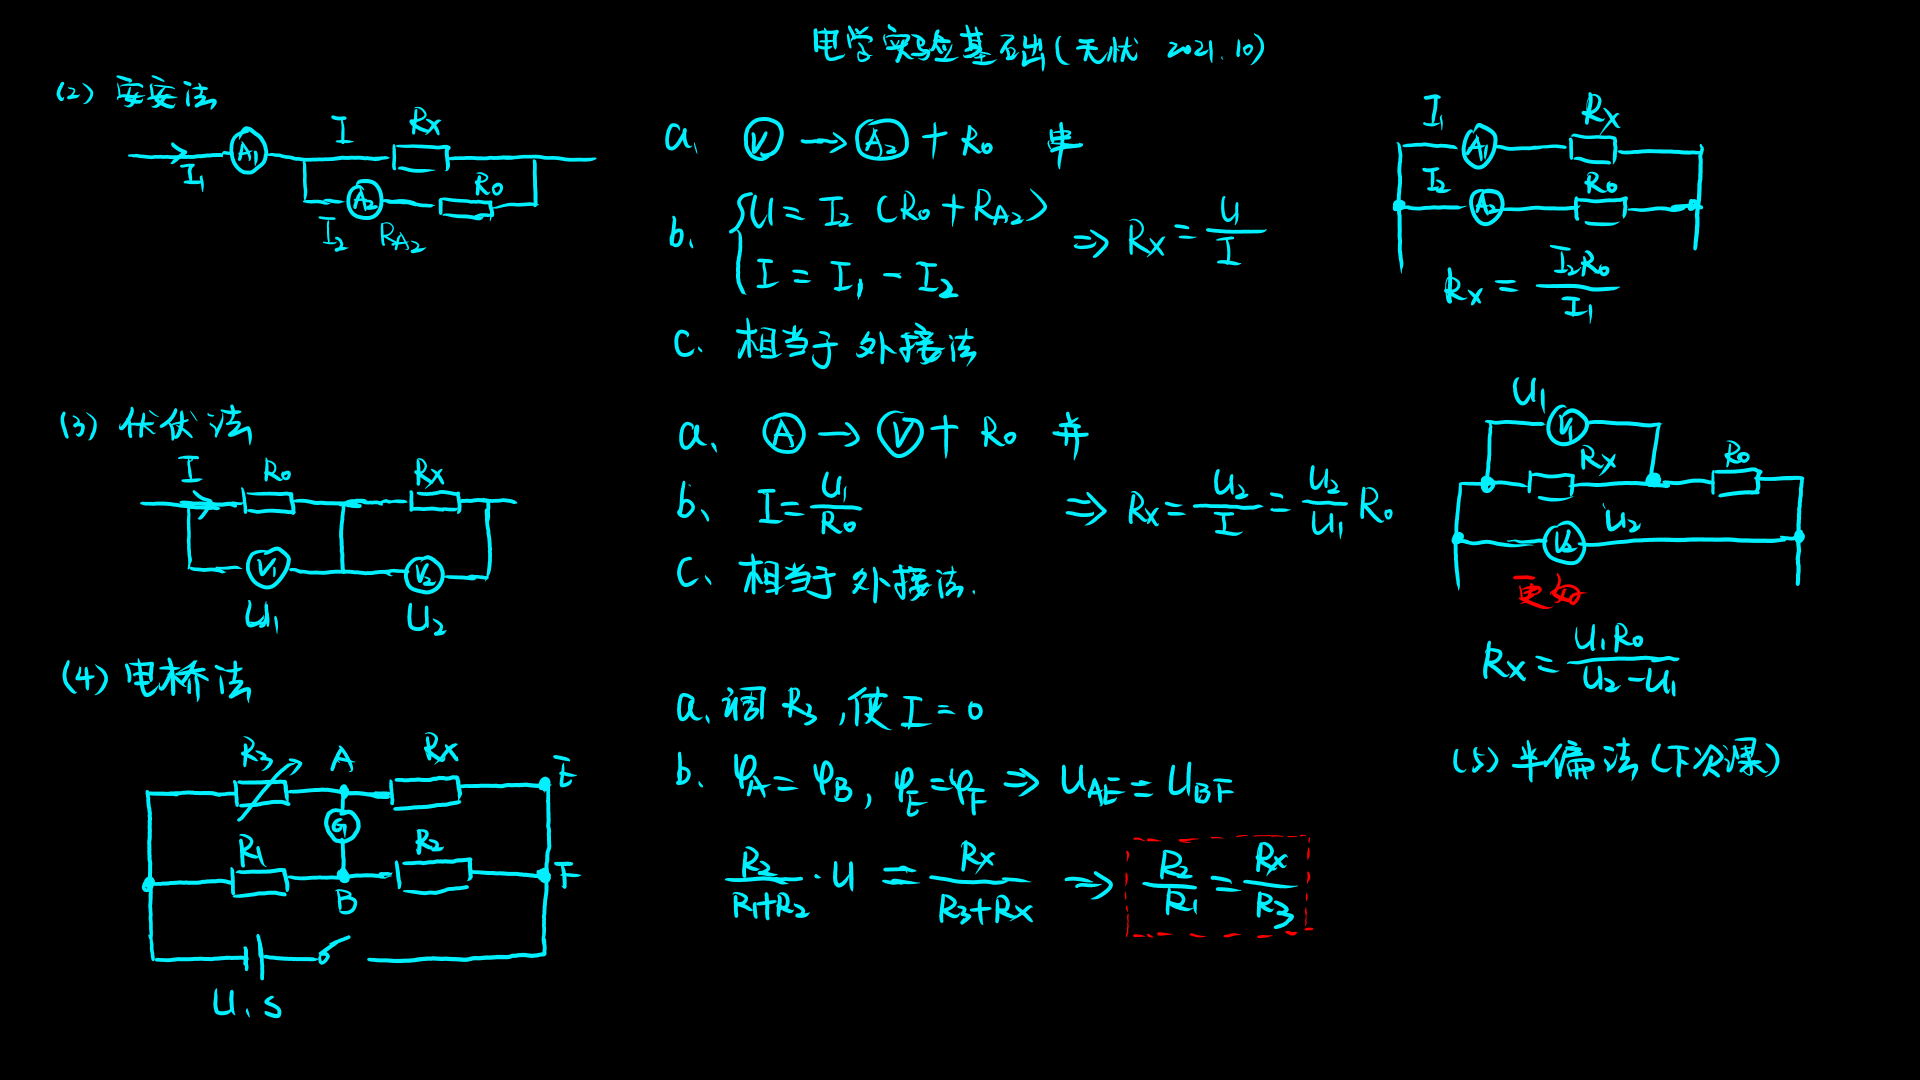 电学实验基础(无忧 2021.10)
(2) 安安法
I₁ A₁ I Rx
I₂ A₂ R_A₂ R₀
a、 Ⓥ → Ⓐ₂ + R₀ 串
b、 { U = I₂ (R₀ + R_A₂)
I = I₁ - I₂
⇒ Rx = U/I
c、 相当于 外接法
I₁ A₁ Rx
I₂ A₂ R₀
Rx = I₂R₀/I₁
(3) 伏伏法
I R₀ Rx
V₁ V₂
U₁ U₂
a、 Ⓐ → Ⓥ + R₀ 并
b、 I = U₁/R₀ ⇒ Rx = U₂/I = U₂/U₁ R₀
c、 相当于 外接法.
U₁ V₁
Rx R₀
V₂ U₂
更好
Rx = U₁R₀/(U₂-U₁)
(4) 电桥法
R₃ A Rx E
G
R₁ B R₂ F
U、S
a、调 R₃ ,使 I = 0
b、 φA = φB, φE = φF ⇒ U_AE = U_BF
R₂/(R₁+R₂) · U = Rx/(R₃+Rx) ⇒ R₂/R₁ = Rx/R₃
(5) 半偏法(下次课)